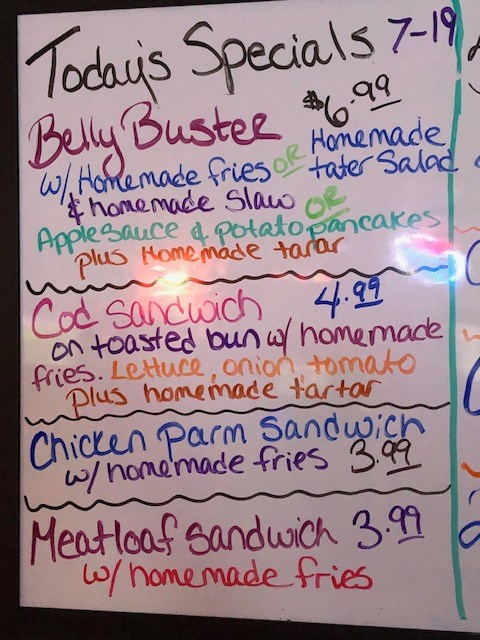 Today's Specials 7-19
$6.99
Belly Buster
w/ Homemade fries OR Homemade tater Salad
& homemade Slaw OR
Applesauce & potato pancakes
plus Homemade tarar
Cod Sandwich 4.99
on toasted bun w/ homemade
fries. Lettuce, onion, tomato
Plus homemade tartar
Chicken Parm Sandwich
w/ homemade fries 3.99
Meatloaf Sandwich 3.99
w/ homemade fries